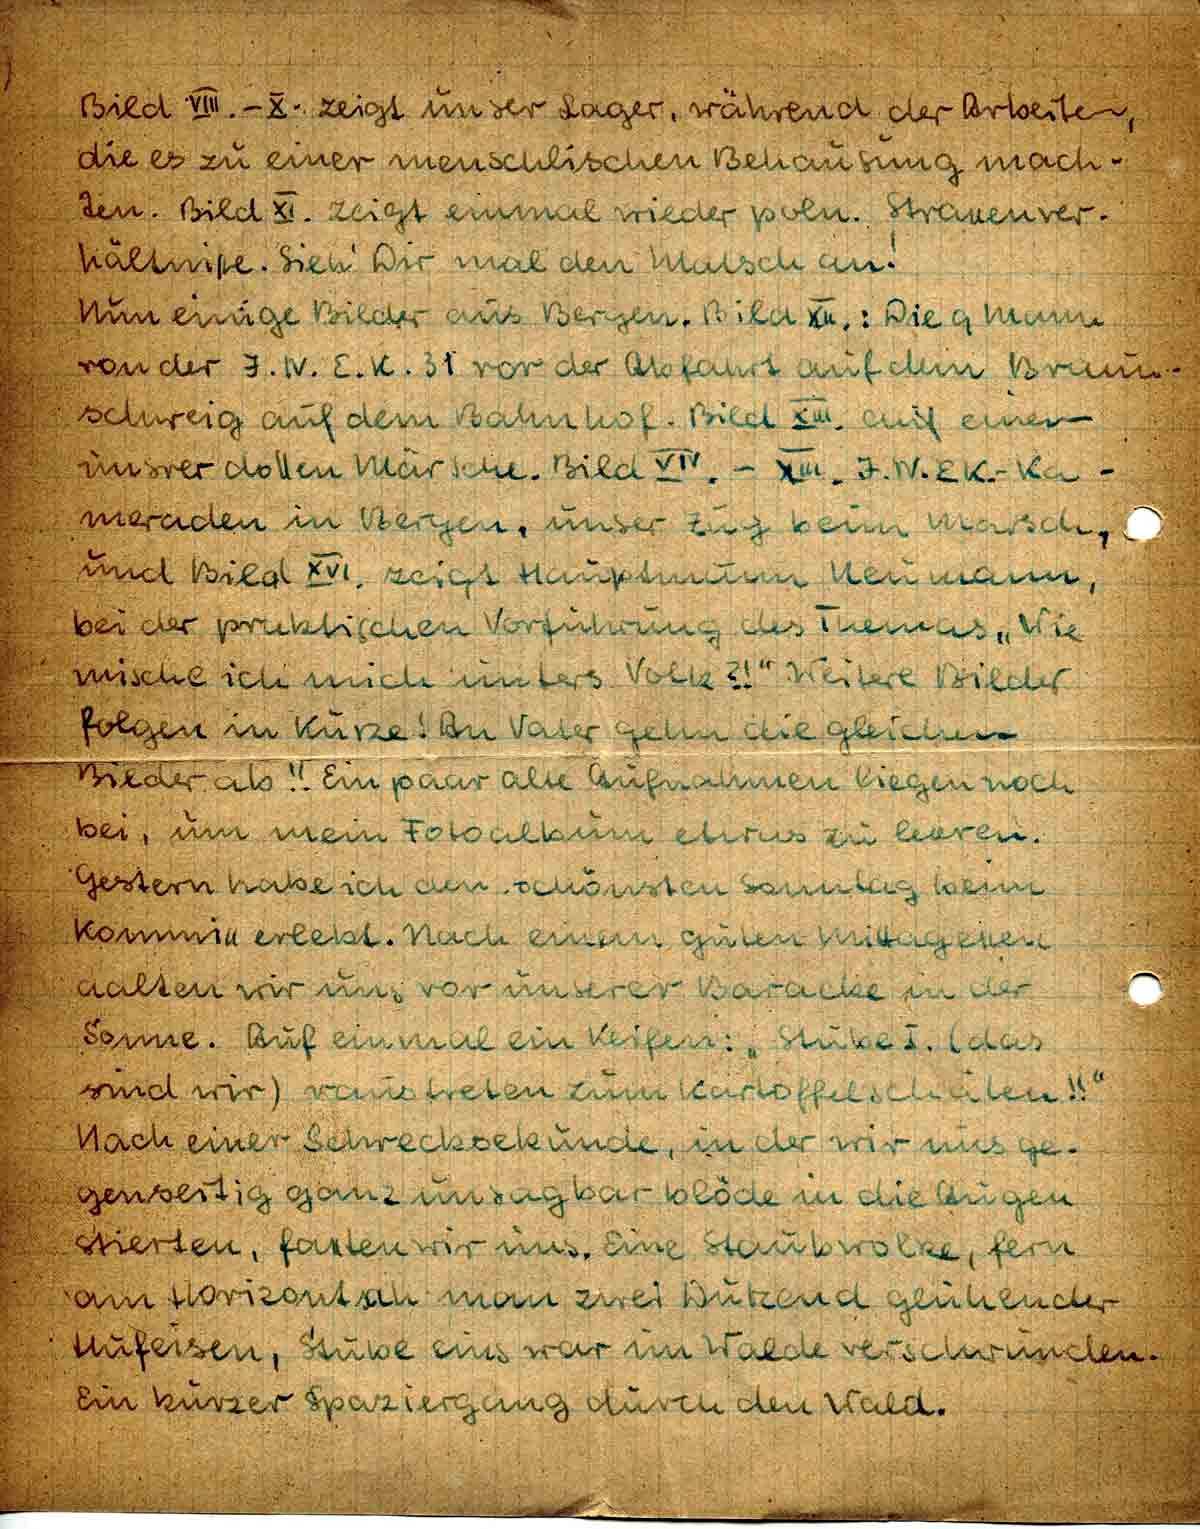 Bild VIII. – X. zeigt unser Lager, während der Arbeiten,
die es zu einer menschlischen Behausung mach-
ten. Bild XI. zeigt einmal wieder poln. Straßenver-
hältniße. Sieh' Dir mal den Matsch an!
Nun einige Bilder aus Bergen. Bild XII.: Die 9 Mann
von der J.N.E.K. 31 vor der Abfahrt auf dem Braun-
schweig auf dem Bahnhof. Bild XIII. auf einem
unsrer dollen Märsche. Bild VIV. – XIII. J.N.EK.-Ka-
meraden in Bergen, unser Zug beim Marsch,
und Bild XVI. zeigt Hauptmann Neumann,
bei der praktischen Vorführung des Themas „Wie
mische ich mich unters Volk?!“ Weitere Bilder
folgen in Kürze! An Vater gehn die gleichen
Bieder ab!! Ein paar alte Aufnahmen liegen noch
bei, um mein Fotoalbum etwas zu leeren.
Gestern habe ich den schönsten Sonntag beim
Kommiß erlebt. Nach einem guten Mittagessen
aalten wir uns vor unserer Baracke in der
Sonne. Auf einmal ein Keifen: „Stube I. (das
sind wir) raustreten zum Kartoffelschälen!!“
Nach einer Schrecksekunde, in der wir uns ge-
genseitig ganz unsagbar blöde in die Augen
stierten, faßten wir uns. Eine Staubwolke, fern
am Horizont sah man zwei Dutzend glühender
Hufeisen, Stube eins war im Walde verschwunden.
Ein kurzer Spaziergang durch den Wald.